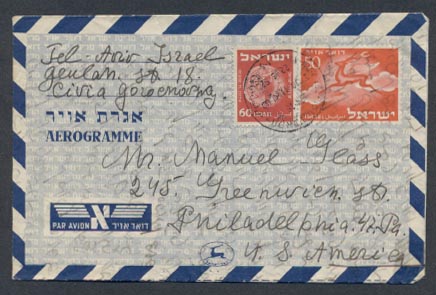 Tel-Aviv Israel
geulah st 18.
Civia
ישראל
60
דואר אויר
50
ישראל
אגרת אויר
AEROGRAMME
Mr. Manuel Glass
245. Greenwich st.
Philadelphia. 47. Pa.
U. S. America
PAR AVION דואר אויר